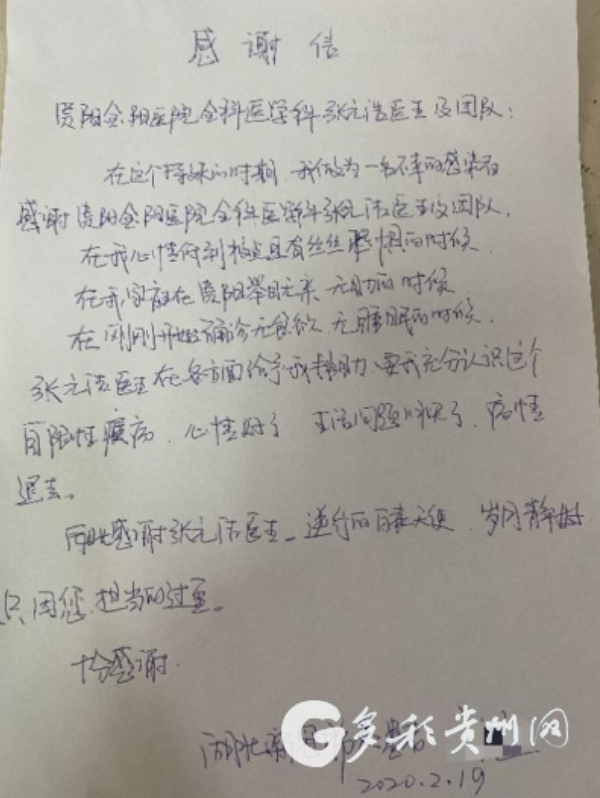 感谢信
贵阳金阳医院全科医学科张元浩医生及团队：
在这个特殊的时期，我做为一名不幸的感染者
感谢贵阳金阳医院全科医学科张元浩医生及团队，
在我心情行到极点且有丝丝恐惧的时候
在我家庭在贵阳举目无亲 无助的时候
在刚刚开始确诊无食欲 无睡眠的时候，
张元浩医生在各方面给予我帮助，要我充分认识这个
自限性疾病，心情好了 生活问题解决了，病情
退去。
感谢张元浩医生—逆行的白衣天使，岁月静好
只因您担当的过重。
十分感谢.
湖北
多彩贵州网
2020.2.19